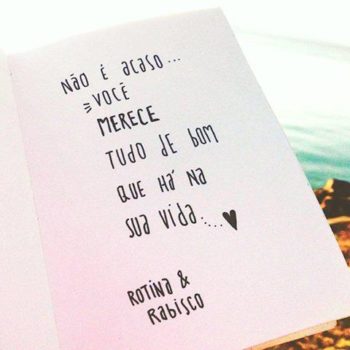 NÃO É ACASO...
VOCÊ
MERECE
TUDO DE BOM
QUE HÁ NA
SUA VIDA....
ROTINA &
RABISCO